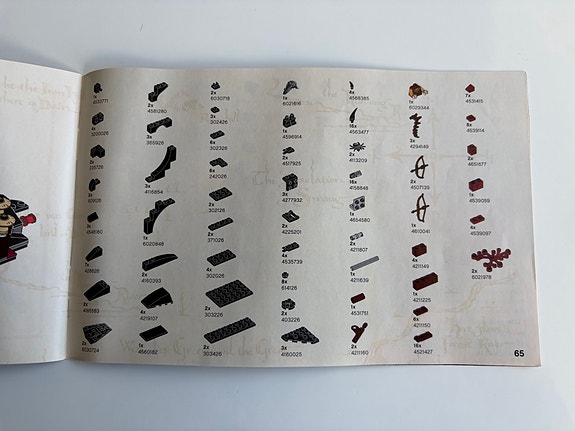 1x
4533771
4x
3200026
2x
3x
4548180
7x
428628
4x
4185583
2x
6030724
2x
4581280
3x
3659926
3x
4116854
1x
6020848
2x
4160393
4x
4219107
1x
4560182
2x
6030718
3x
302426
3x
302326
6x
242026
3x
302126
2x
371026
4x
302026
3x
303226
2x
303426
1x
6021616
1x
4596914
2x
4517925
3x
4277932
2x
4225201
4x
4535739
8x
614126
2x
403226
3x
4160025
4x
4568385
16x
4563477
2x
4113209
16x
4158848
1x
4654580
2x
4211807
1x
4211639
1x
4531751
2x
4211160
1x
6029344
3x
4294149
2x
4507139
1x
4610041
4x
4211149
1x
4211225
6x
4211150
16x
4521427
7x
4531415
8x
4539114
2x
4651877
1x
4539059
4x
4539097
2x
6021978
65